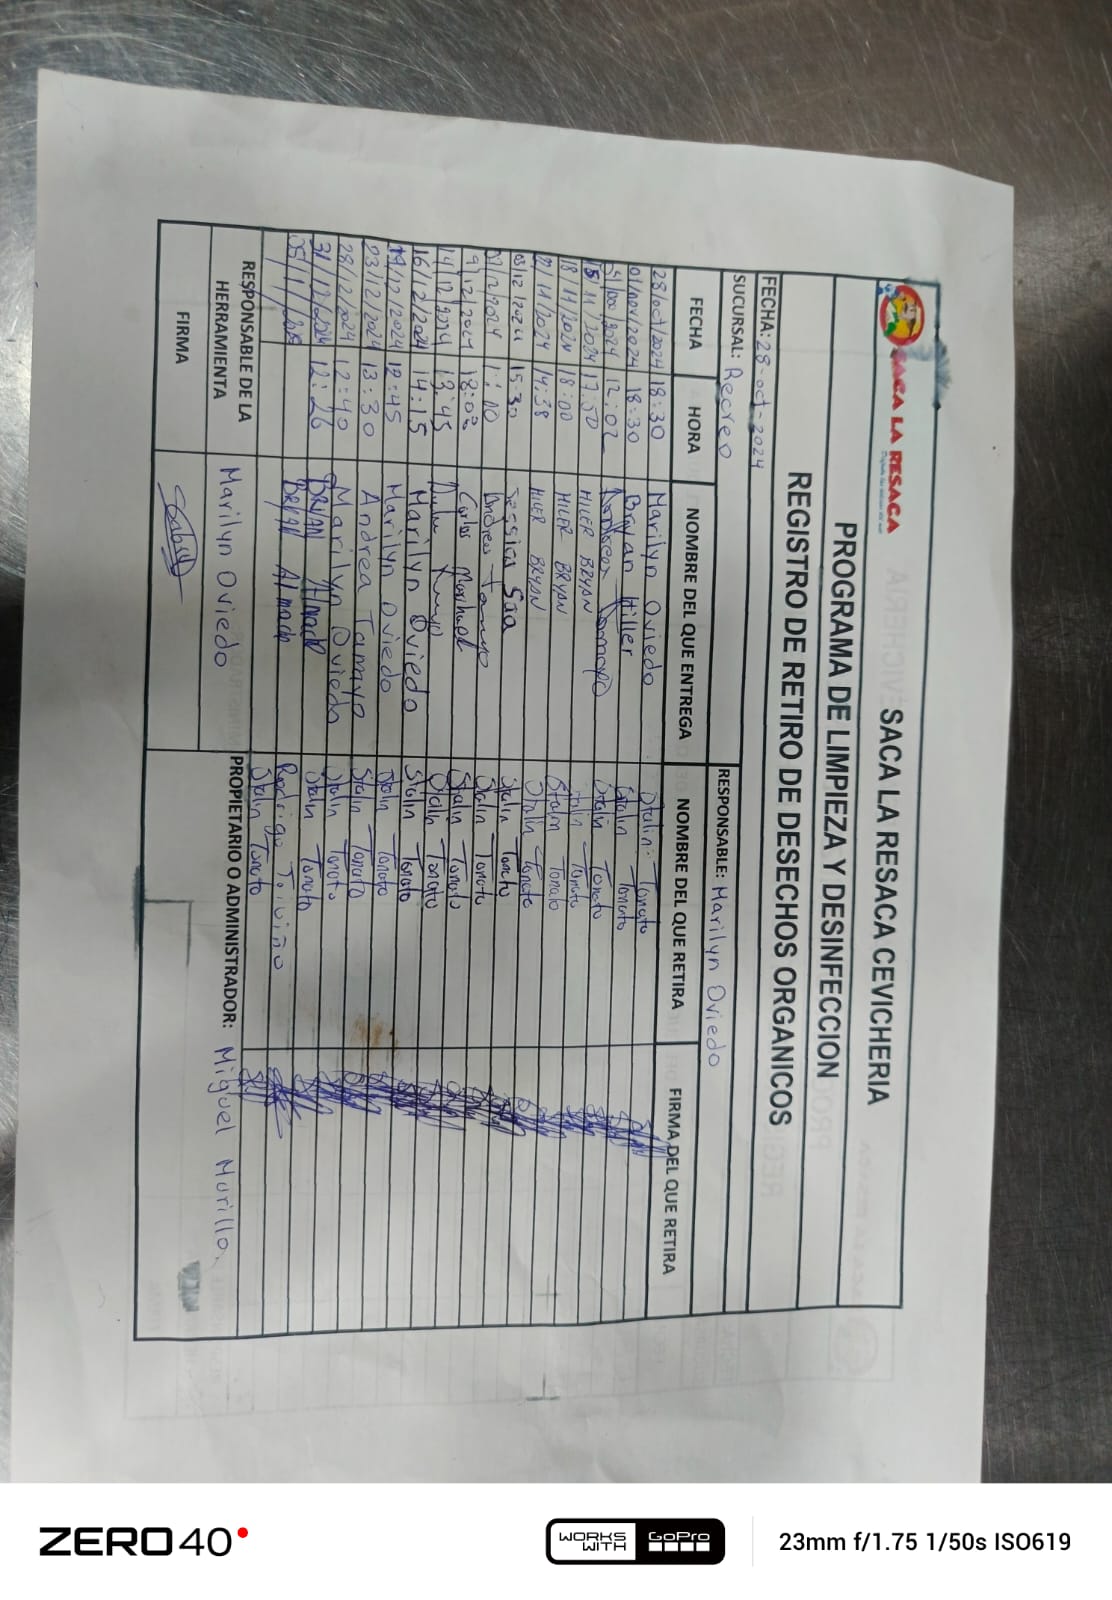 SACA LA RESACA
SACA LA RESACA CEVICHERIA
PROGRAMA DE LIMPIEZA Y DESINFECCION
REGISTRO DE RETIRO DE DESECHOS ORGANICOS
FECHA: 28-oct-2024
SUCURSAL: Recreo RESPONSABLE: Marilyn Oviedo
FECHA HORA NOMBRE DEL QUE ENTREGA NOMBRE DEL QUE RETIRA FIRMA DEL QUE RETIRA
28/oct/2024 18:30 Marilyn Oviedo Stalin Tonato
01/nov/2024 18:30 Bryan Hiller Stalin Tonato
12:02 Stalin Tonato
15/11/2024 17:50 HILER BRYAN Stalin Tonato
18/11/2024 18:00 HILER BRYAN Stalin Tonato
14:38 HILER BRYAN Stalin Tonato
03/12/2024 15:30 Jessica Saa Stalin Tonato
Andrea Tamayo Stalin Tonato
9/12/2024 18:00 Carlos Stalin Tonato
14/12/2024 18:45 Stalin Tonato
16/12/2024 14:15 Marilyn Oviedo Stalin Tonato
19/12/2024 12:45 Marilyn Oviedo Stalin Tonato
23/12/2024 13:30 Andrea Tamayo Stalin Tonato
28/12/2024 12:40 Marilyn Oviedo Stalin Tonato
31/12/2024 12:26 BRYAN Almach Stalin Tonato
BRYAN Almach Rodrigo
Stalin Tonato
RESPONSABLE DE LA HERRAMIENTA Marilyn Oviedo PROPIETARIO O ADMINISTRADOR: Miguel Murillo
FIRMA
ZERO 40
WORKS WITH GoPro
23mm f/1.75 1/50s ISO619